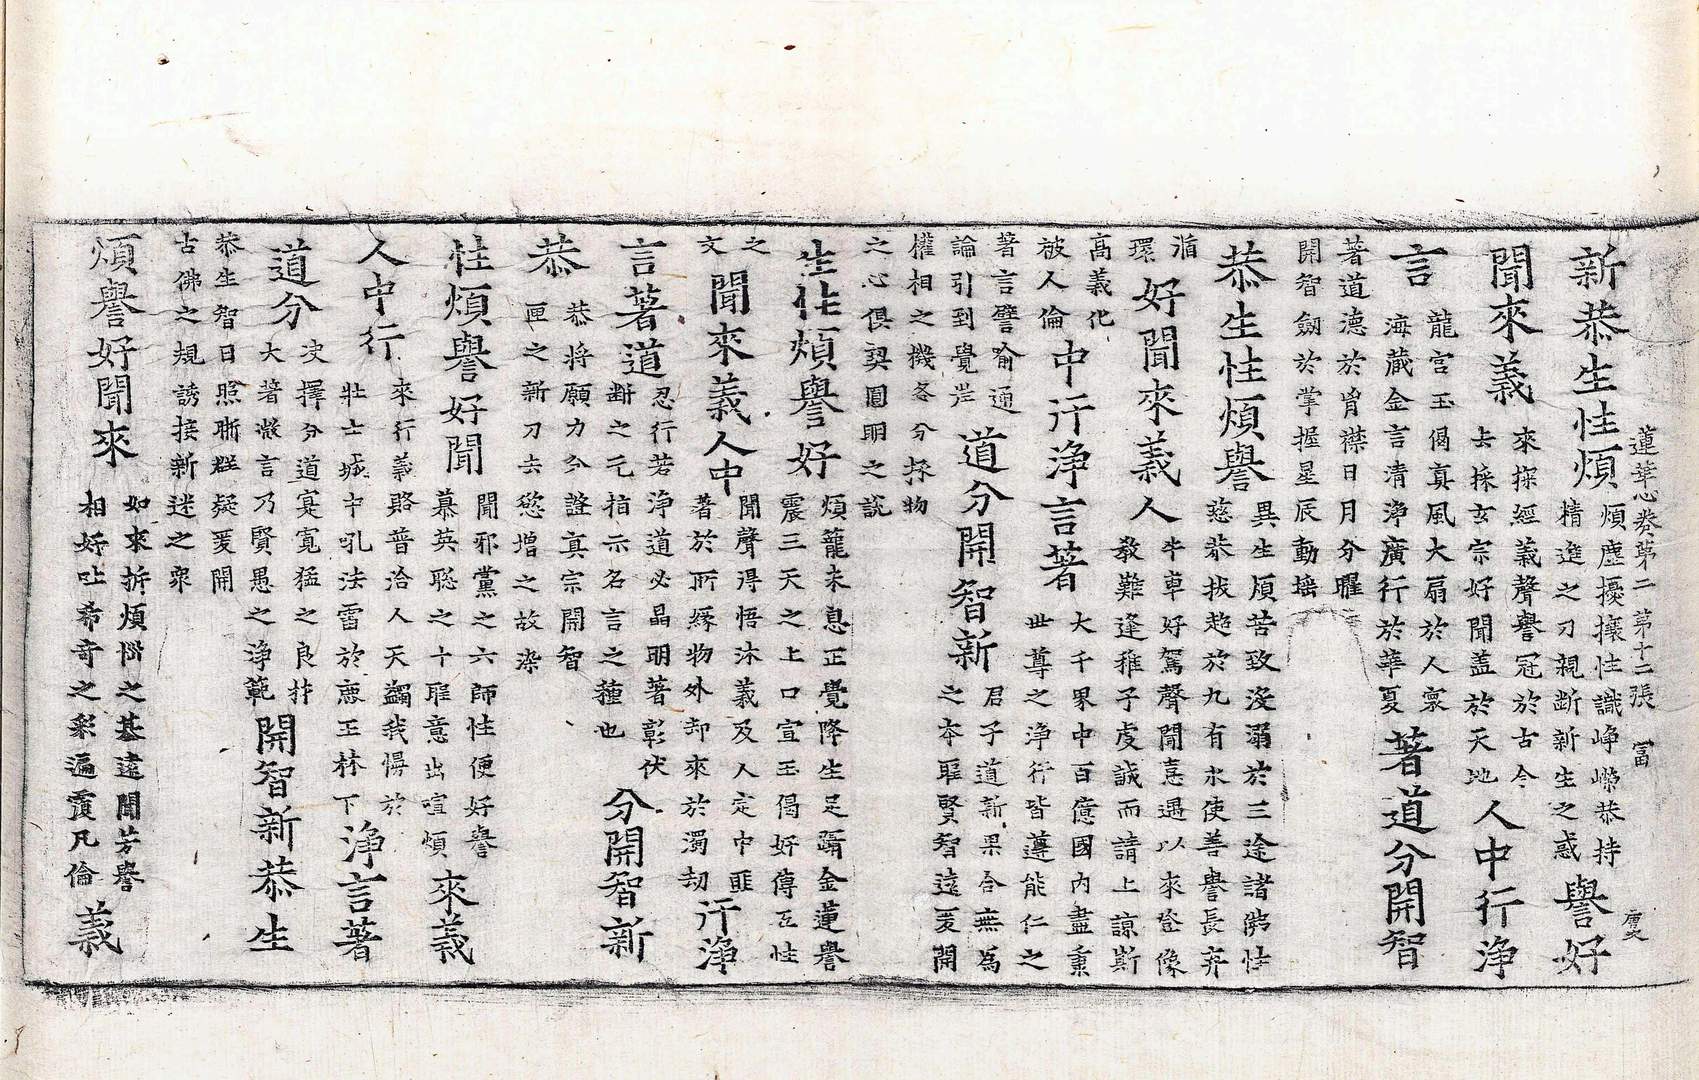 蓮華心卷第二 第十二張 冨
新恭生性煩
煩塵擾攘性識崢嶸恭持
精進之刀親斷新生之惑
譽好
聞來義
來探經義聲譽冠於古今
去採玄宗好聞盖於天地
人中行淨
言
龍宮玉偈真風大扇於人寰
海藏金言清淨廣行於華夏
著道分開智
著道德於胷襟日月分曜
開智劒於掌握星辰動摇
恭生性煩譽
異生煩苦致沒溺於三途諸僻性
慈恭拔趂於九有永使善譽長弃
循
環
好聞來義人
牛車好駕聲聞憙遇以來登像
教難逢稚子虔誠而請上諒斯
高義化
被人倫
中行淨言著
大千界中百億國內盡稟
世尊之淨行皆遵能仁之
著言譬喻通
論引到覺岸
道分開智新
君子道新果合無為
之本聖賢智遠爰開
權相之機各分採物
之心俱契圓明之說
生性煩譽好
煩籠未息正覺降生足躡金蓮譽
震三天之上口宣玉偈好傳五性
之
文
聞來義人中
聞聲得悟沐義及人定中匪
著於所緣物外却來於濁劫
行淨
言著道
忍行若淨道必晶明著彰伏
斷之元指示名言之種也
分開智新
恭
恭將願力分證真宗開智
匣之新刀去慾增之故染
性煩譽好聞
聞邪黨之六師性便好譽
慕英聡之十聖意出喧煩
來義
人中行
來行義路普洽人天蠲我慢於
壯士城中吼法雷於鹿王林下
淨言著
道分
決擇分道寔寬猛之良材
大著微言乃賢愚之淨範
開智新恭生
恭生智日照晰群疑爰開
古佛之規誘接新迷之衆
煩譽好聞來
如來折煩惱之基遠聞芳譽
相好吐希奇之彩遍覆凡倫
義